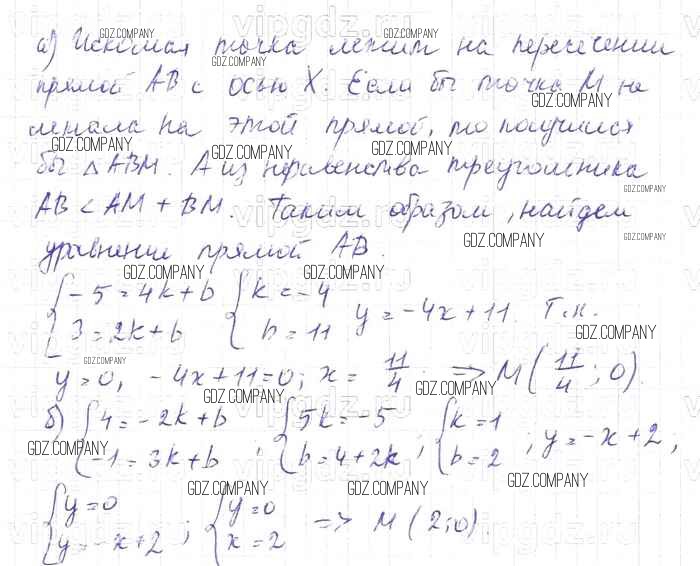 а) Искомая точка лежит на пересечении
прямой AB с осью X. Если бы точка M не
лежала на этой прямой, то получился
бы △ABM. А из неравенства треугольника
AB < AM + BM. Таким образом, найдем
уравнение прямой AB.
{-5 = 4k + b {k = -4 y = -4x + 11. Т.к.
{3 = 2k + b {b = 11
y = 0, -4x + 11 = 0; x = 11/4 => M(11/4; 0).
б) {4 = -2k + b {5k = -5 {k = 1
{-1 = 3k + b ; {b = 4 + 2k ; {b = 2 ; y = -x + 2,
{y = 0 {y = 0
{y = -x + 2 ; {x = 2 => M(2; 0).
GDZ.COMPANY
vipgdz.ru